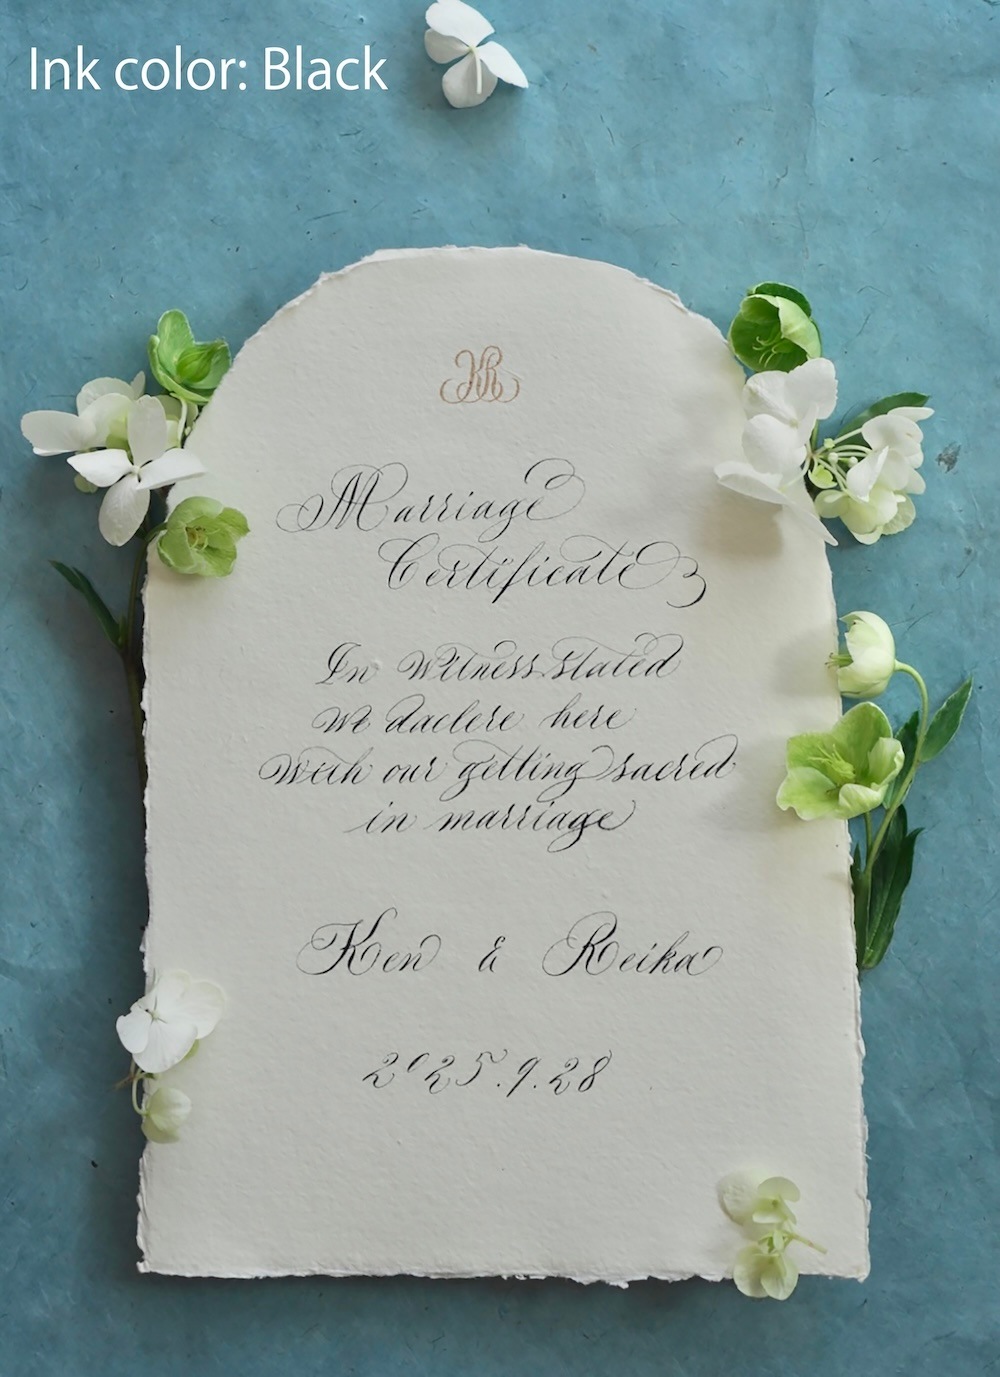 Ink color: Black
KR
Marriage
Certificate
In Witness stated
We daclere here
With our getting sacred
in marriage
Ken & Reika
2025.9.28